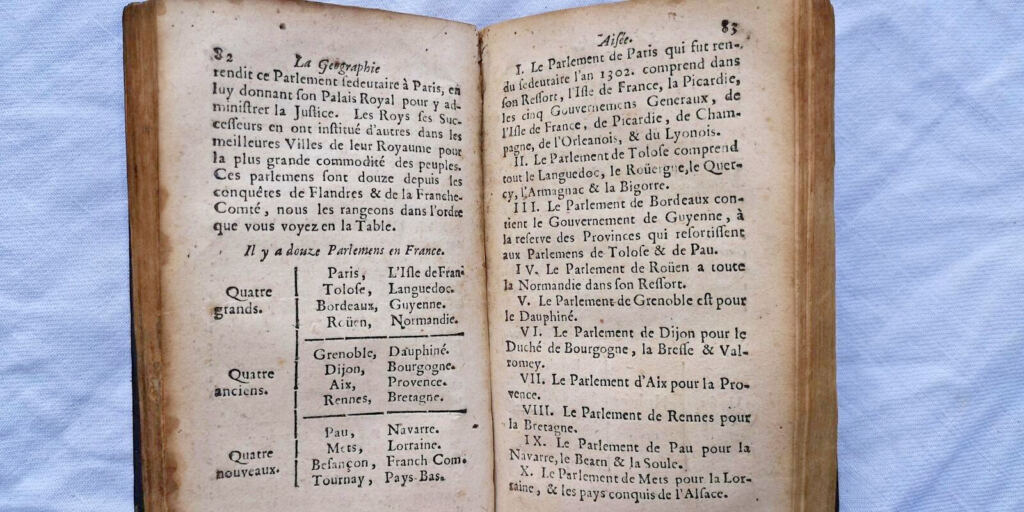 82
La Geographie
rendit ce Parlement ſedeutaire à Paris, en
luy donnant ſon Palais Royal pour y ad-
miniſtrer la Juſtice. Les Roys ſes Suc-
ceſſeurs en ont inſtitué d'autres dans les
meilleures Villes de leur Royaume pour
la plus grande commodité des peuples.
Ces parlemens ſont douze depuis les
conquêtes de Flandres & de la Franche-
Comté, nous les rangeons dans l'ordre
que vous voyez en la Table.
Il y a douze Parlemens en France.
Quatre grands.
Paris, L'Iſle de Fran
Toloſe, Languedoc.
Bordeaux, Guyenne.
Roüen, Normandie.
Quatre anciens.
Grenoble, Dauphiné.
Dijon, Bourgogne.
Aix, Provence.
Rennes, Bretagne.
Quatre nouveaux.
Pau, Navarre.
Mets, Lorraine.
Beſançon, Franch Com.
Tournay, Pays-Bas.
83
Aiſée.
I. Le Parlement de Paris qui fut ren-
du ſedeutaire l'an 1302. comprend dans
ſon Reſſort, l'Iſle de France, la Picardie,
les cinq Gouvernemens Generaux, de
l'Iſle de France, de Picardie, de Cham-
pagne, de l'Orleanois, & du Lyonois.
II. Le Parlement de Toloſe comprend
tout le Languedoc, le Roüergue, le Quer-
cy, l'Armagnac & la Bigorre.
III. Le Parlement de Bordeaux con-
tient le Gouvernement de Guyenne, à
la reſerve des Provinces qui reſortiſſent
aux Parlemens de Toloſe & de Pau.
IV. Le Parlement de Roüen a toute
la Normandie dans ſon Reſſort.
V. Le Parlement de Grenoble eſt pour
le Dauphiné.
VI. Le Parlement de Dijon pour le
Duché de Bourgogne, la Breſſe & Val-
romey.
VII. Le Parlement d'Aix pour la Pro-
vence.
VIII. Le Parlement de Rennes pour
la Bretagne.
IX. Le Parlement de Pau pour la
Navarre, le Bearn & la Soule.
X. Le Parlement de Mets pour la Lor-
raine, & les pays conquis de l'Alſace.